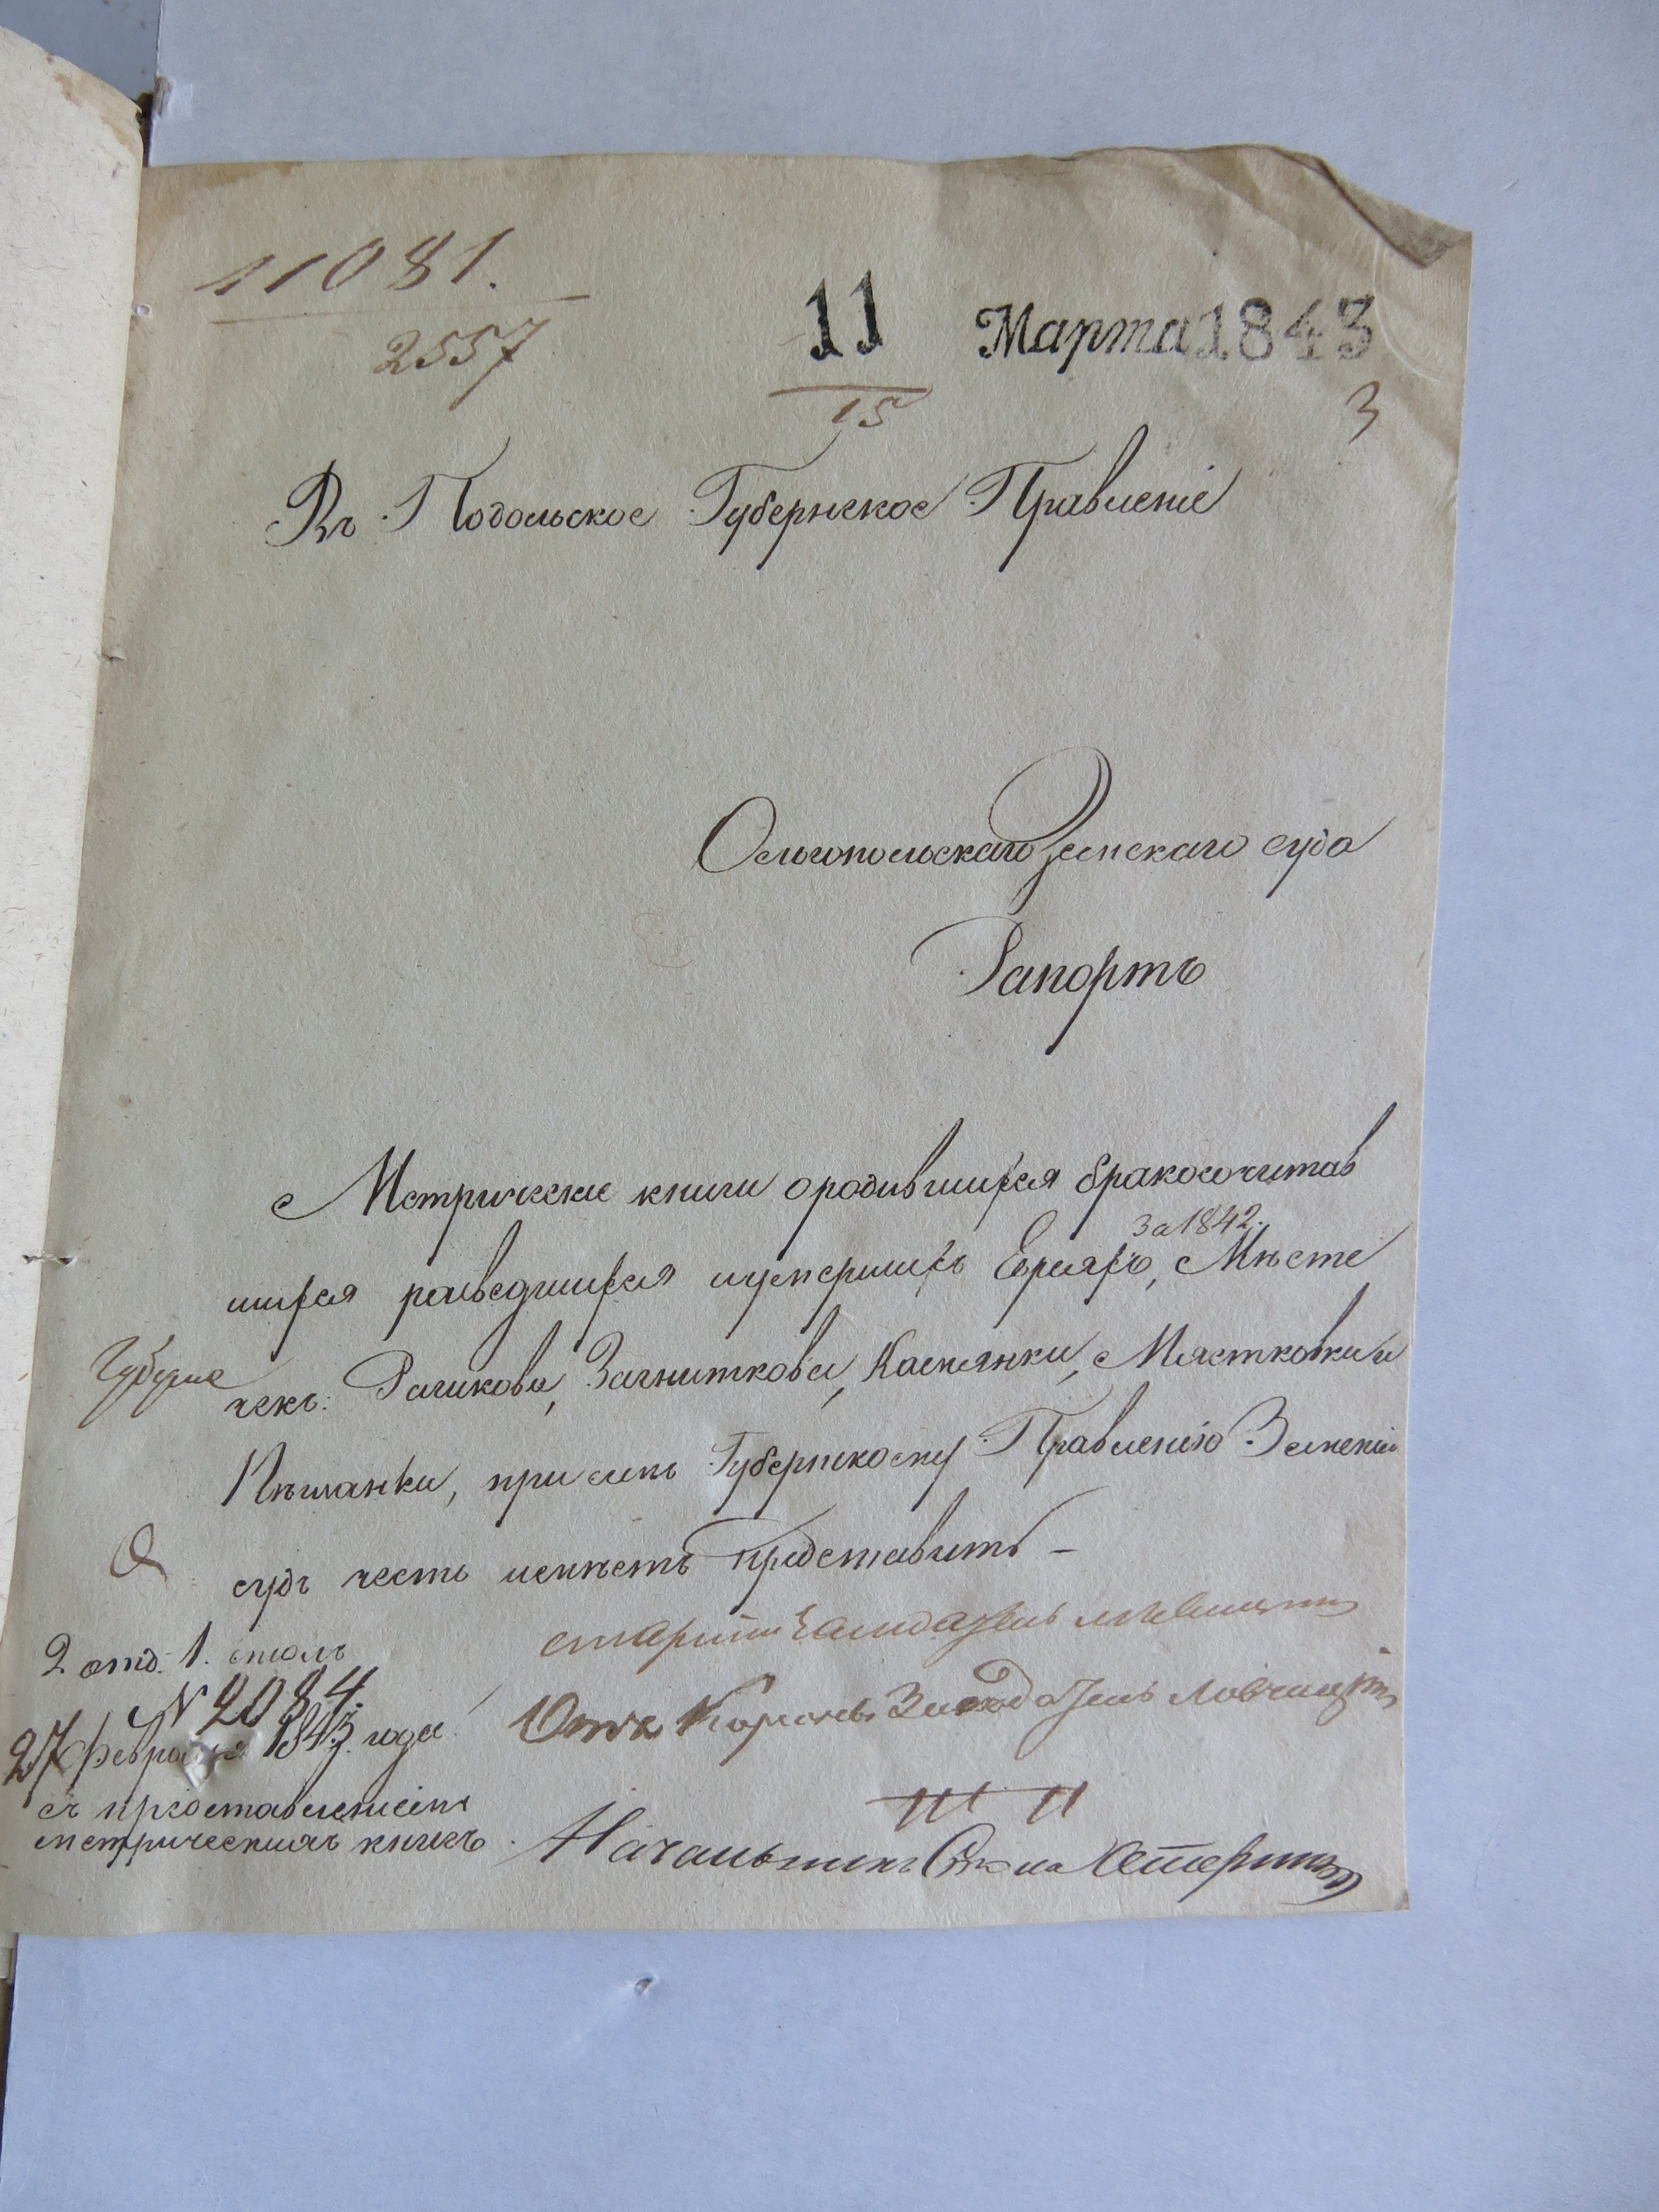 11081.
2557
11 Марта 1843
15
3
Въ Подольское Губернское Правленіе
Ольгопольскаго Земскаго суда
Рапортъ
Метрические книги ородившихся бракосочитав
за 1842.
шихся разведшихся иумершихъ Евреяхъ, Мѣсте
чекъ: Рашкова, Загниткова, Каменки, Мястковки и
Пѣщанки, при семъ Губернскому Правленію Земскій
судъ честь имѣетъ представить –
старшій Засѣдатель
Засѣдатель
2 отд. 1. столъ
№ 2084.
27 Февраля 1843 года
съ представленіемъ
метрическихъ книгъ
Начальникъ Стола